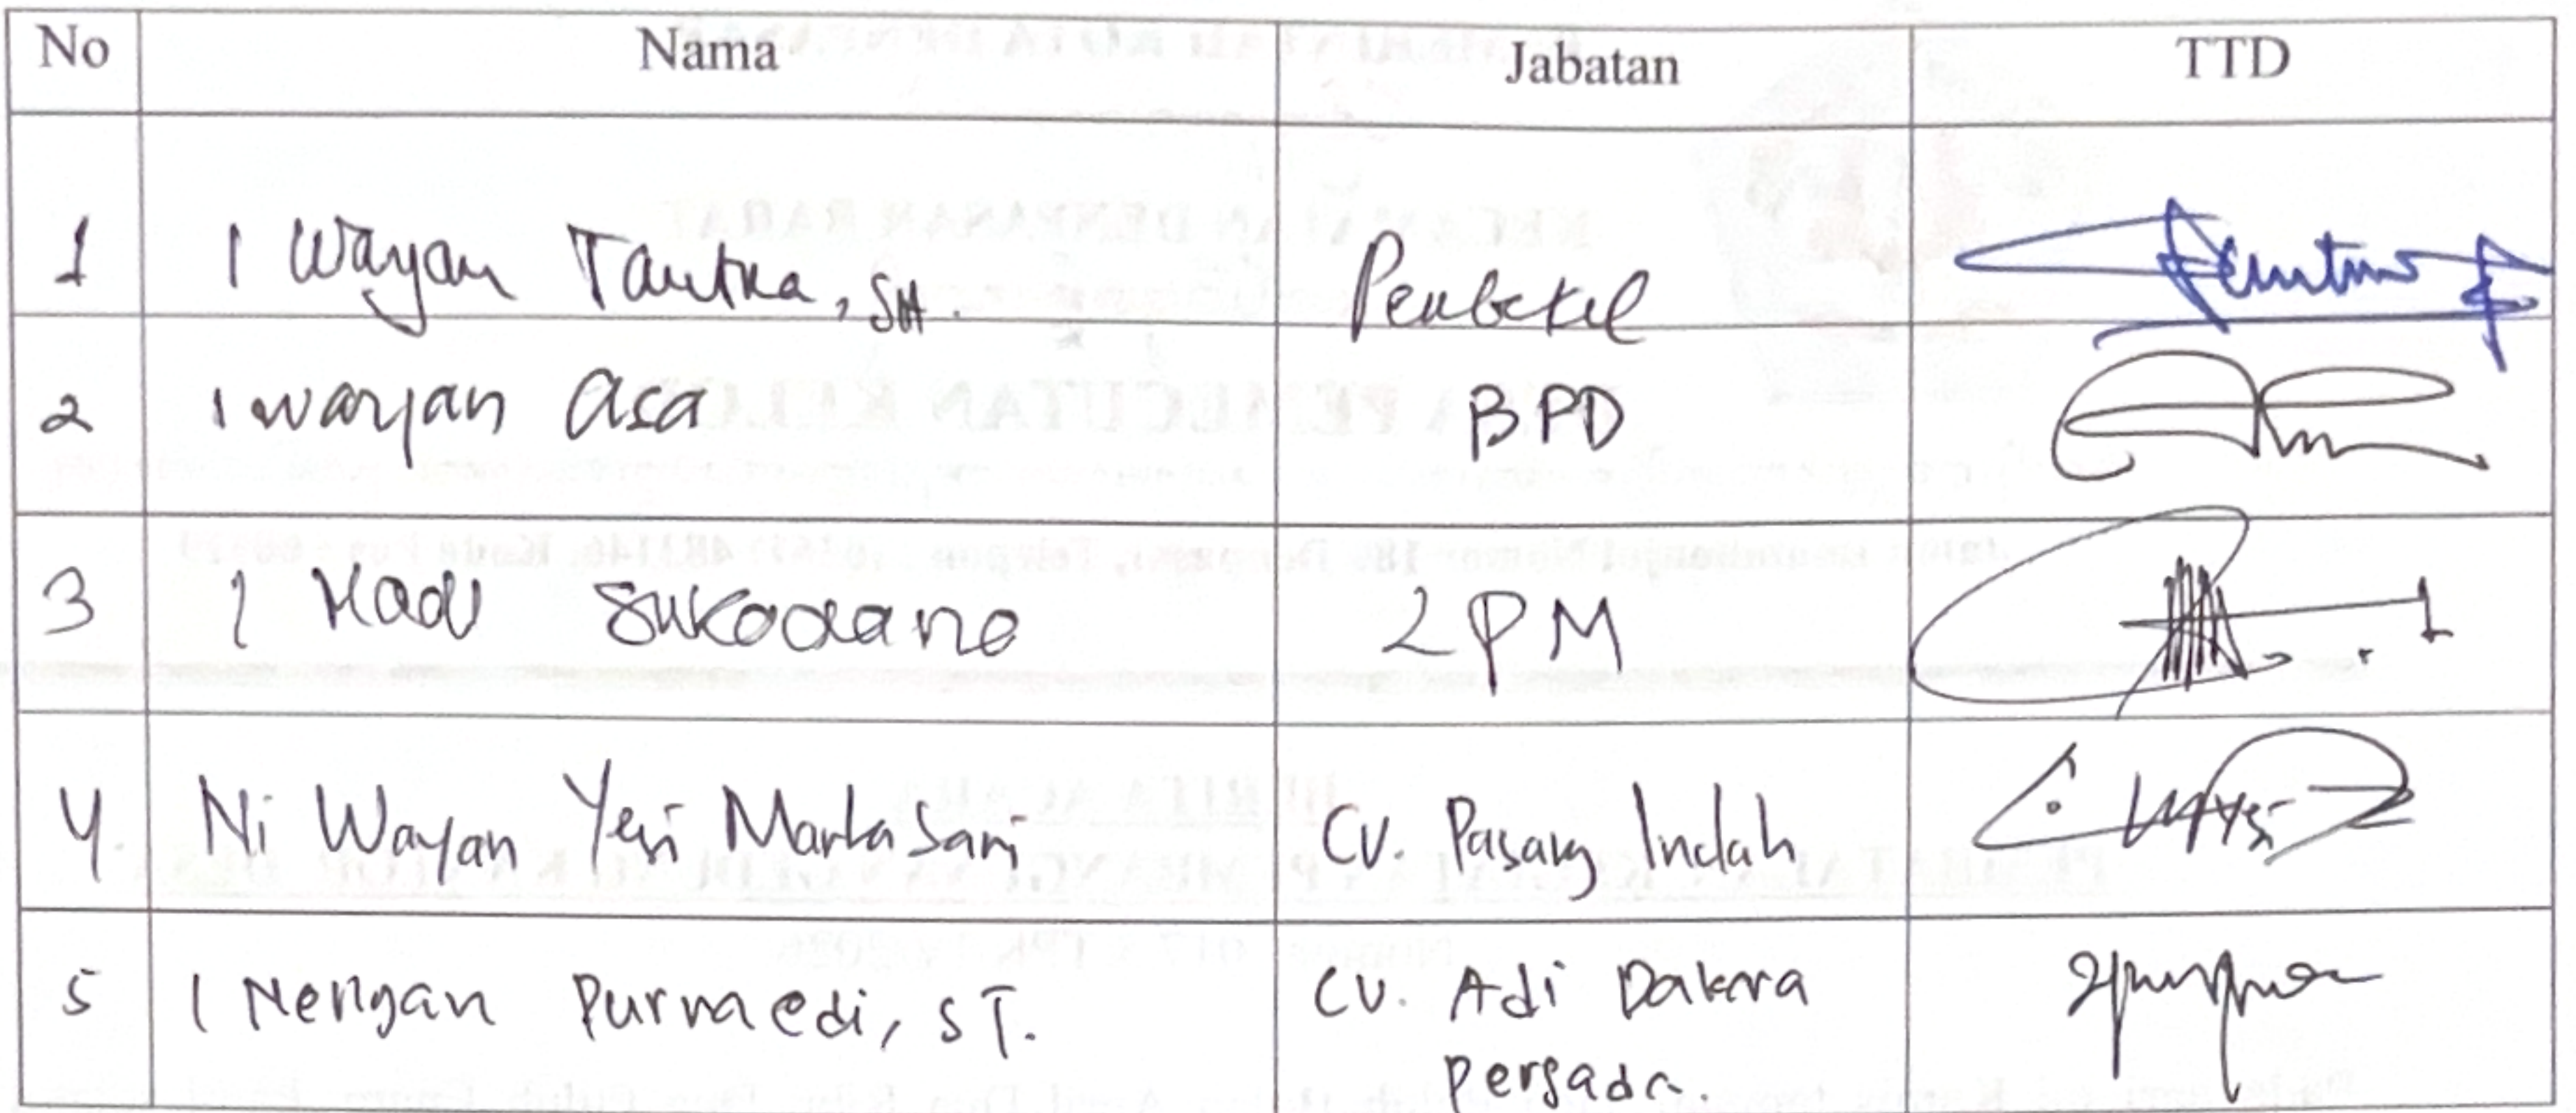 No Nama Jabatan TTD
1 I Wayan Tantra, SH. Perbekel
2 I wayan Asa BPD
3 I Made Sukadana LPM
4. Ni Wayan Yesi Martasari CV. Pasang Indah
5 I Nengan Purnaedi, ST. CV. Adi Dakara
Persada.